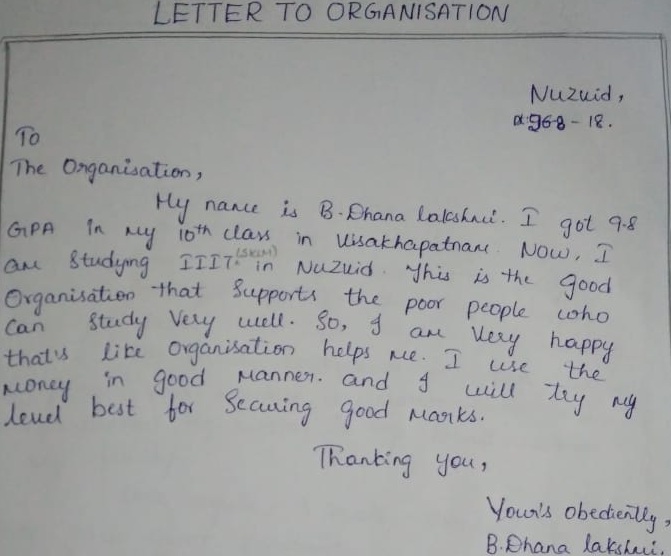 LETTER TO ORGANISATION
Nuzuid,
To
The Organisation,
My name is B.Dhana lakshmi. I got 9.8
GPA in my 10th class in Visakhapatnam. Now, I
am studying IIIT (SKLM) in Nuzuid. This is the good
Organisation that Supports the poor people who
Can study very well. So, I am Very happy
that's like Organisation helps me. I use the
money in good manner. and I will try my
level best for Securing good marks.
Thanking you,
Your's obediently,
B.Dhana lakshmi.